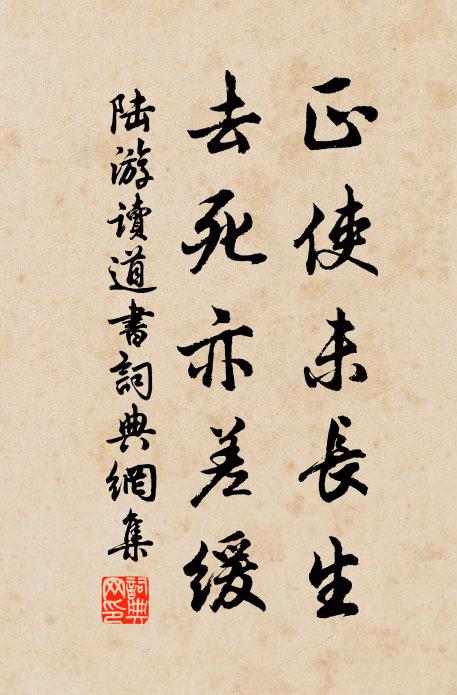 正使未長生
去死亦差緩
陸游讀道書詞典網集
詞典网印